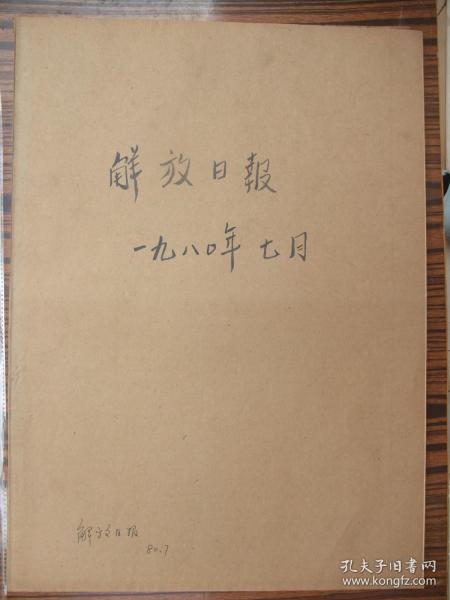 解放日報
一九八〇年七月
解放日报
80.7
孔夫子旧书网
www.kongfz.com